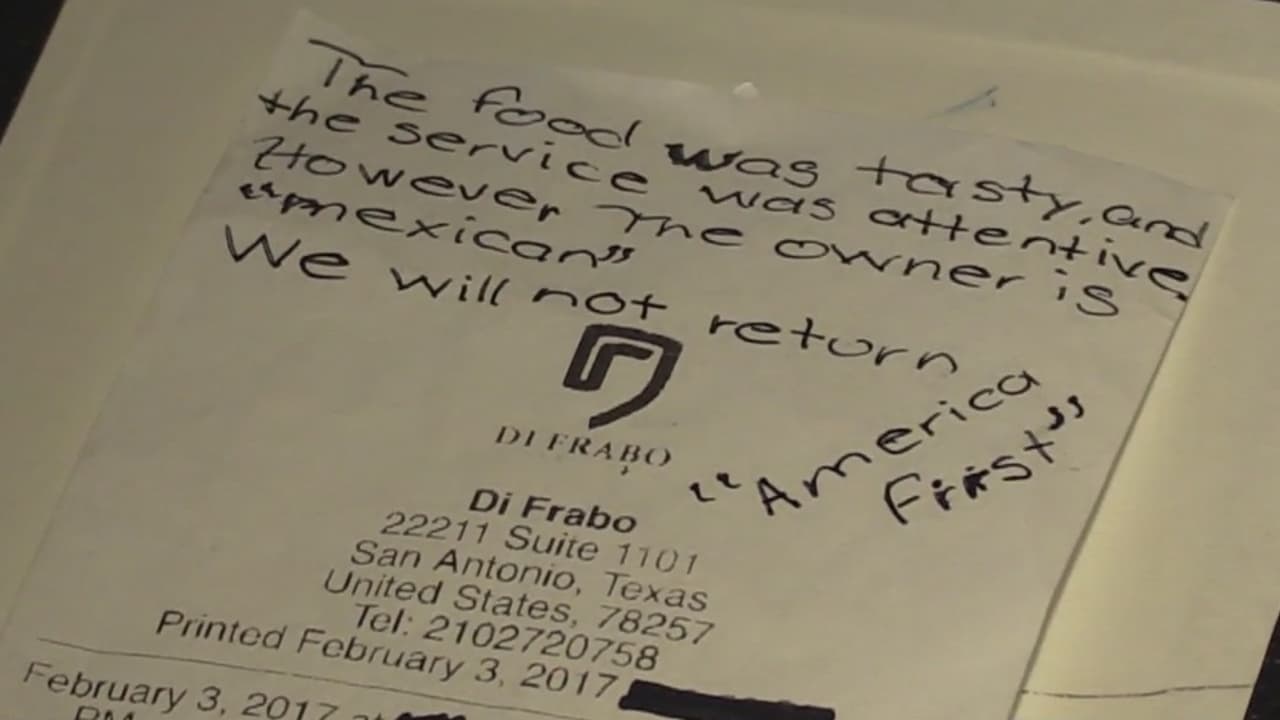 The food was tasty, and
the service was attentive.
However The owner is
"mexican"
We will not return
"America
First"
DI FRABO
Di Frabo
22211 Suite 1101
San Antonio, Texas
United States, 78257
Tel: 2102720758
Printed February 3, 2017
February 3, 2017 at
PM